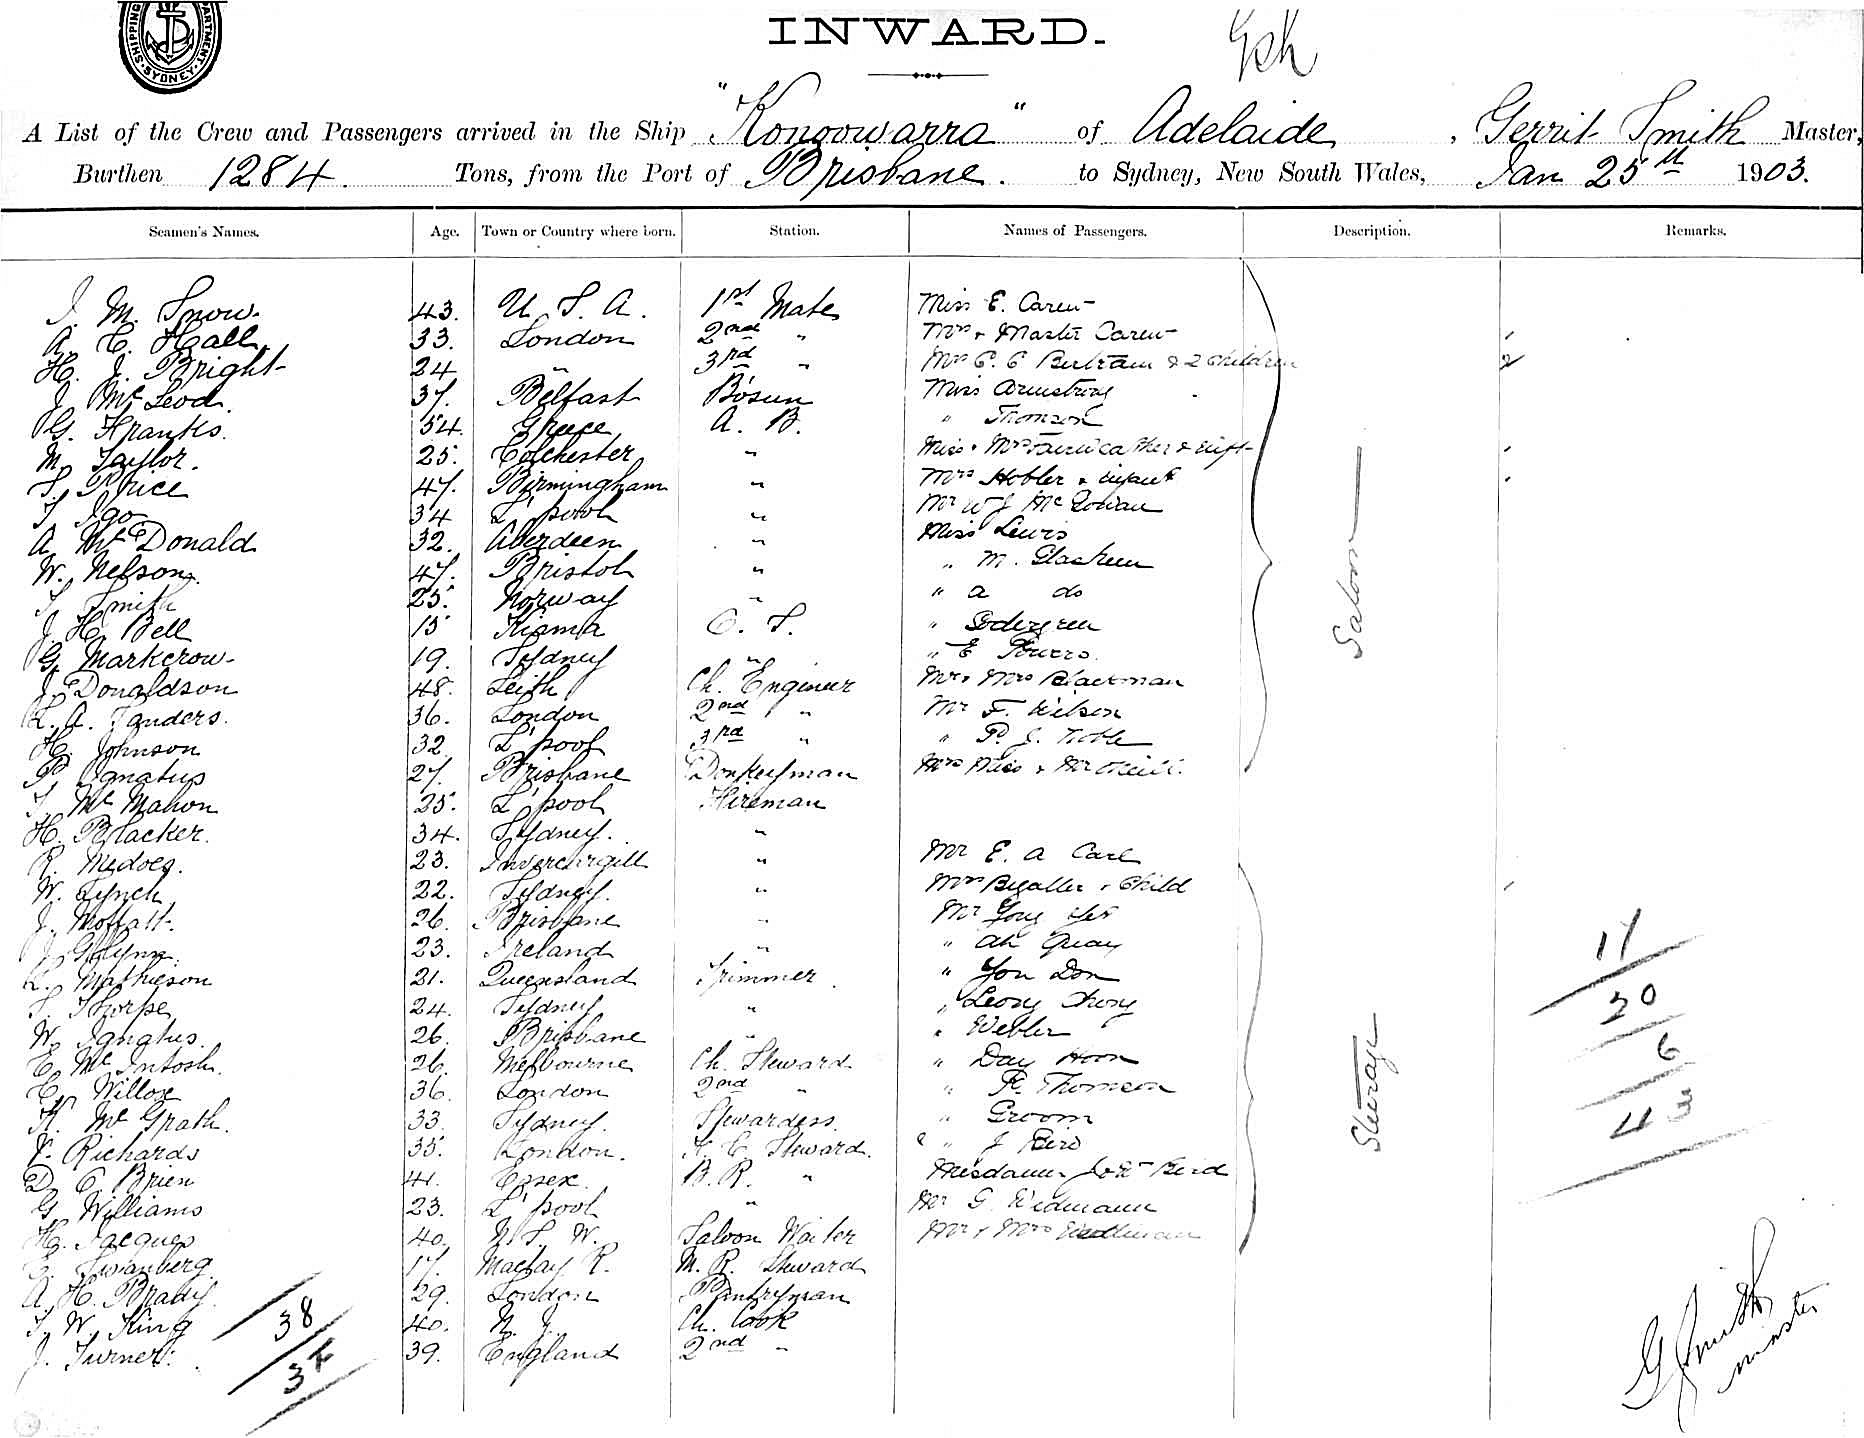 SHIPPING DEPARTMENT. SYDNEY.
INWARD.
A List of the Crew and Passengers arrived in the Ship "Konoowarra" of Adelaide, Gerrit Smith Master,
Burthen 1284. Tons, from the Port of Brisbane. to Sydney, New South Wales, Jan 25th 1903.
Seamen's Names. Age. Town or Country where born. Station. Names of Passengers. Description. Remarks.
J. M. Snow. 43. U. S. A. 1st Mate Miss E. Carew
A. C. Hall. 33. London 2nd " Mrs & Master Carew
H. J. Bright 24 " 3rd " Mrs Bertram & 2 children 2
J. McLeod. 37. Belfast Bosun Miss Armstrong
G. Franks. 54. Greece A. B. " Thomson
M. Taylor. 25. Colchester " Miss & Mrs
S. Price 47. Birmingham " Mrs Hobler & infant
T. Igo 34 L'pool " Mr W J McGowan
A. McDonald 32. Aberdeen " Miss Lewis
W. Nelson. 47. Bristol " " M. Glasheen
T. Smith 25. Norway " " A do
J. H. Bell 15 Kiama O. S. " Sodergren
G. Markcrow 19. Sydney " " E Powers.
J. Donaldson 48. Leith Ch. Engineer Mr & Mrs Blackman
L. A. Sanders. 36. London 2nd " Mr F. Wilson
H. Johnson 32 L'pool 3rd " " P. J. Noble
P. Ignatus 27. Brisbane Donkeyman Mrs Miss & Mr
T. McMahon 25. L'pool Fireman
H. Blacker. 34. Sydney. "
R. Medoes. 23. Invercargill " Mr E. A Carl
W. Lynch 22. Sydney. " Mrs & Child
J. Moffatt. 26. Brisbane " Mr
J. Glynn. 23. Ireland " " Ah Quay
L. Mathieson 21. Queensland Trimmer. " You Don
S. Thorpe 24. Sydney " " Leong Chong
W. Ignatus. 26. Brisbane " " Webber
C. McIntosh. 26. Melbourne Ch. Steward " Day Hoon
C. Willox 36. London 2nd " " R. Thomson
K. McGrath. 33. Sydney. Stewardess. " Groom
J. Richards 35. London. Steward. " J Bird
D. O'Brien 41. Essex. B. R. " Mesdames Bird
G. Williams 23. L'pool " Mr G. Wedmann
H. Jacques 40. N. S. W. Saloon Waiter Mr & Mrs
C. Swanberg 17. Maclay R. M. R. Steward
A. H. Brady. 29. London Pantryman
T. W. King 40. N. Z. Ch. Cook
J. Turner. 39. England 2nd "
Saloon
Steerage
17
20
6
43
38
G Smith
Master